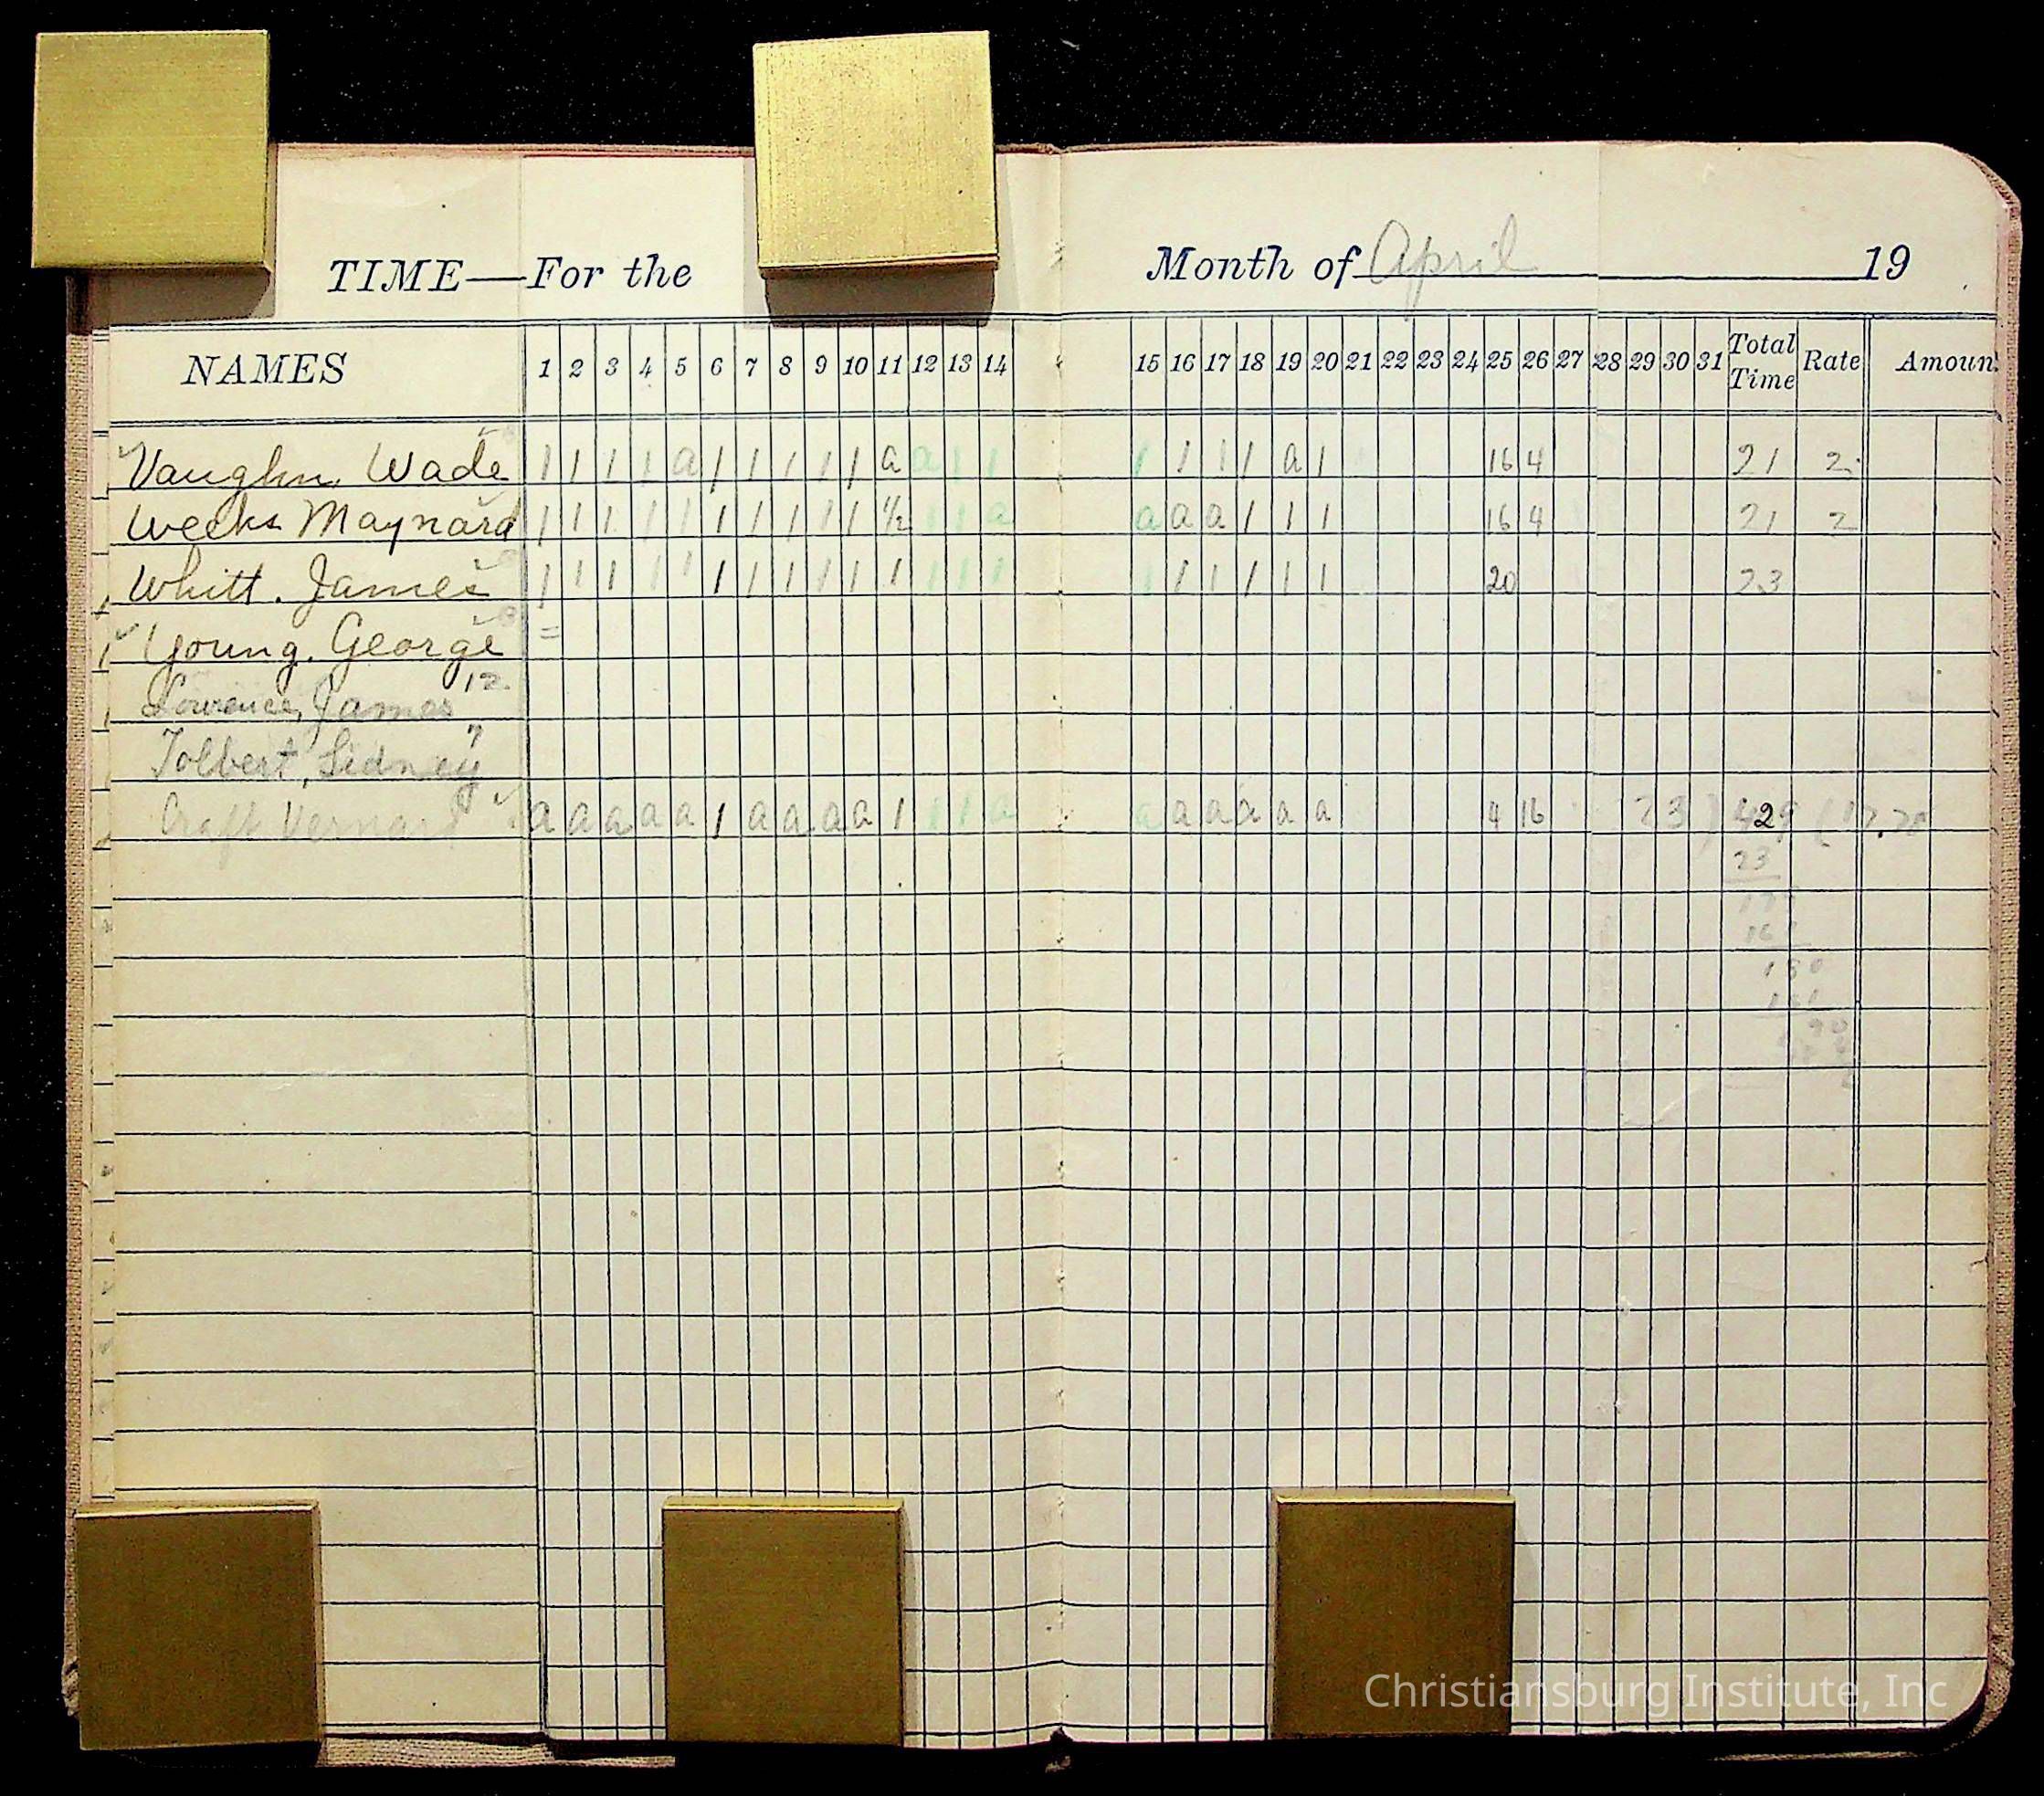 TIME—For the Month of April 19
NAMES 1 2 3 4 5 6 7 8 9 10 11 12 13 14 15 16 17 18 19 20 21 22 23 24 25 26 27 28 29 30 31 Total Time Rate Amoun
Vaughn, Wade 1 1 1 1 a 1 1 1 1 1 a a 1 1 1 1 1 1 a 1 16 4 21 2
Weeks Maynard 1 1 1 1 1 1 1 1 1 1 1/2 1 1 a a a a 1 1 1 16 4 21 2
Whitt. James 1 1 1 1 1 1 1 1 1 1 1 1 1 1 1 1 1 1 1 1 20 23
Young. George =
12
Lowrence, James
7
Tolbert, Sidney
Craft Vernard a a a a a 1 a a a a 1 1 1 a a a a a a a 4 16 23 ) 429 (
23
161
190
Christiansburg Institute, Inc